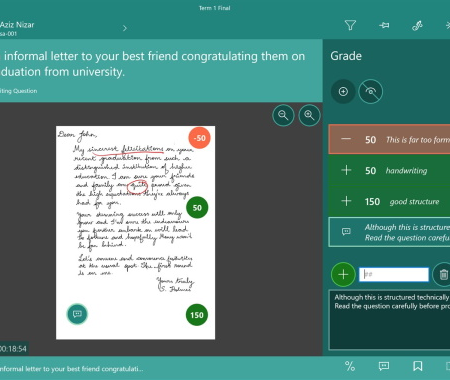 Term 1 Final
Aziz Nizar
sa-001
informal letter to your best friend congratulating them on
duation from university.
iting Question
Grade
Dear John,
My sincerest felicitations on your
recent graduation from such a
distinguished institution of higher
education. I am sure your friends
and family are quite proud given
the high expectations they've always
had for you.
Your stunning success will only
grow and I'm sure the endeavours
you further embark on will lead
to fortune and hopefully fame won't
be far behind.
Let's convene and commence festivities
at the usual spot. The first round
is on me.
Yours truly,
S. Holmes
-50
50
150
50 This is far too form
50 handwriting
150 good structure
Although this is structure
Read the question carefu
##
Although this is structured technically
Read the question carefully before pro
00:18:54
nformal letter to your best friend congratulati...